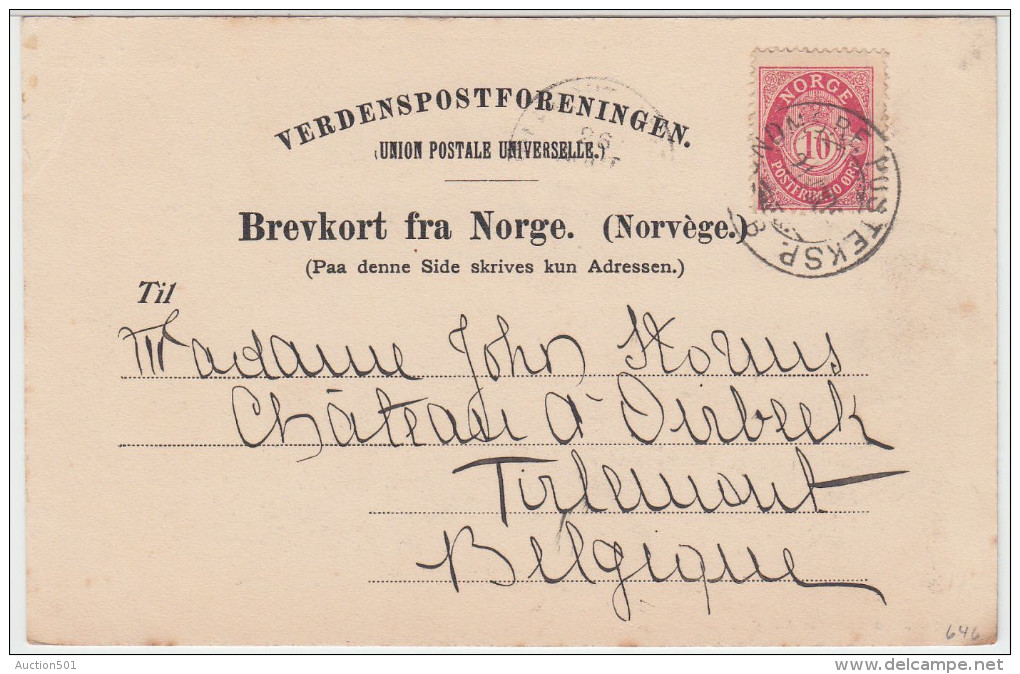 VERDENSPOSTFORENINGEN.
(UNION POSTALE UNIVERSELLE.)
NORGE
10
POSTFRIM 10 ØRE
26
TEKSP.
Brevkort fra Norge. (Norvège.)
(Paa denne Side skrives kun Adressen.)
Til
Madame John Storms
Château d'Oirbeek
Tirlemont
Belgique
646
Auction501
www.delcampe.net